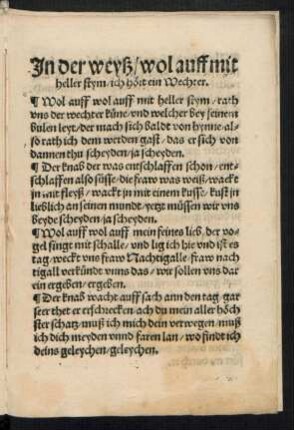 In der weyß/wol auff mit
heller stym/ich hört ein Wechter.
¶ Wol auff wol auff mit heller stym/rath
vns der wechter küne/vnd welcher bey seinem
bulen leyt/der mach sich baldt von hynne/al-
so rath ich dem werden gast/das er sich von
dannen thu scheyden/ja scheyden.
¶ Der knab der was entschlaffen schon/ent-
schlaffen also süsse/die fraw was weiß/wackt
jn mit fleyß/wackt jn mit einem kusse/kust jn
lieblich an seinen munde/yetzt müssen wir vns
beyde scheyden/ja scheyden.
¶ Wol auff wol auff mein feines lieb/der vo-
gel singt mit schalle/vnd lig ich hie vnd ist es
tag/weckt vns fraw Nachtigalle/fraw nach
tigall verkündt vnns das/wir sollen vns dar
ein ergeben/ergeben.
¶ Der knab wacht auff sach ann den tag/gar
seer thet er erschrecken/ach du mein aller höch
ster schatz/muß ich mich dein verwegen/muß
ich dich meyden vnnd faren lan/wo findt ich
deins geleychen/geleychen.